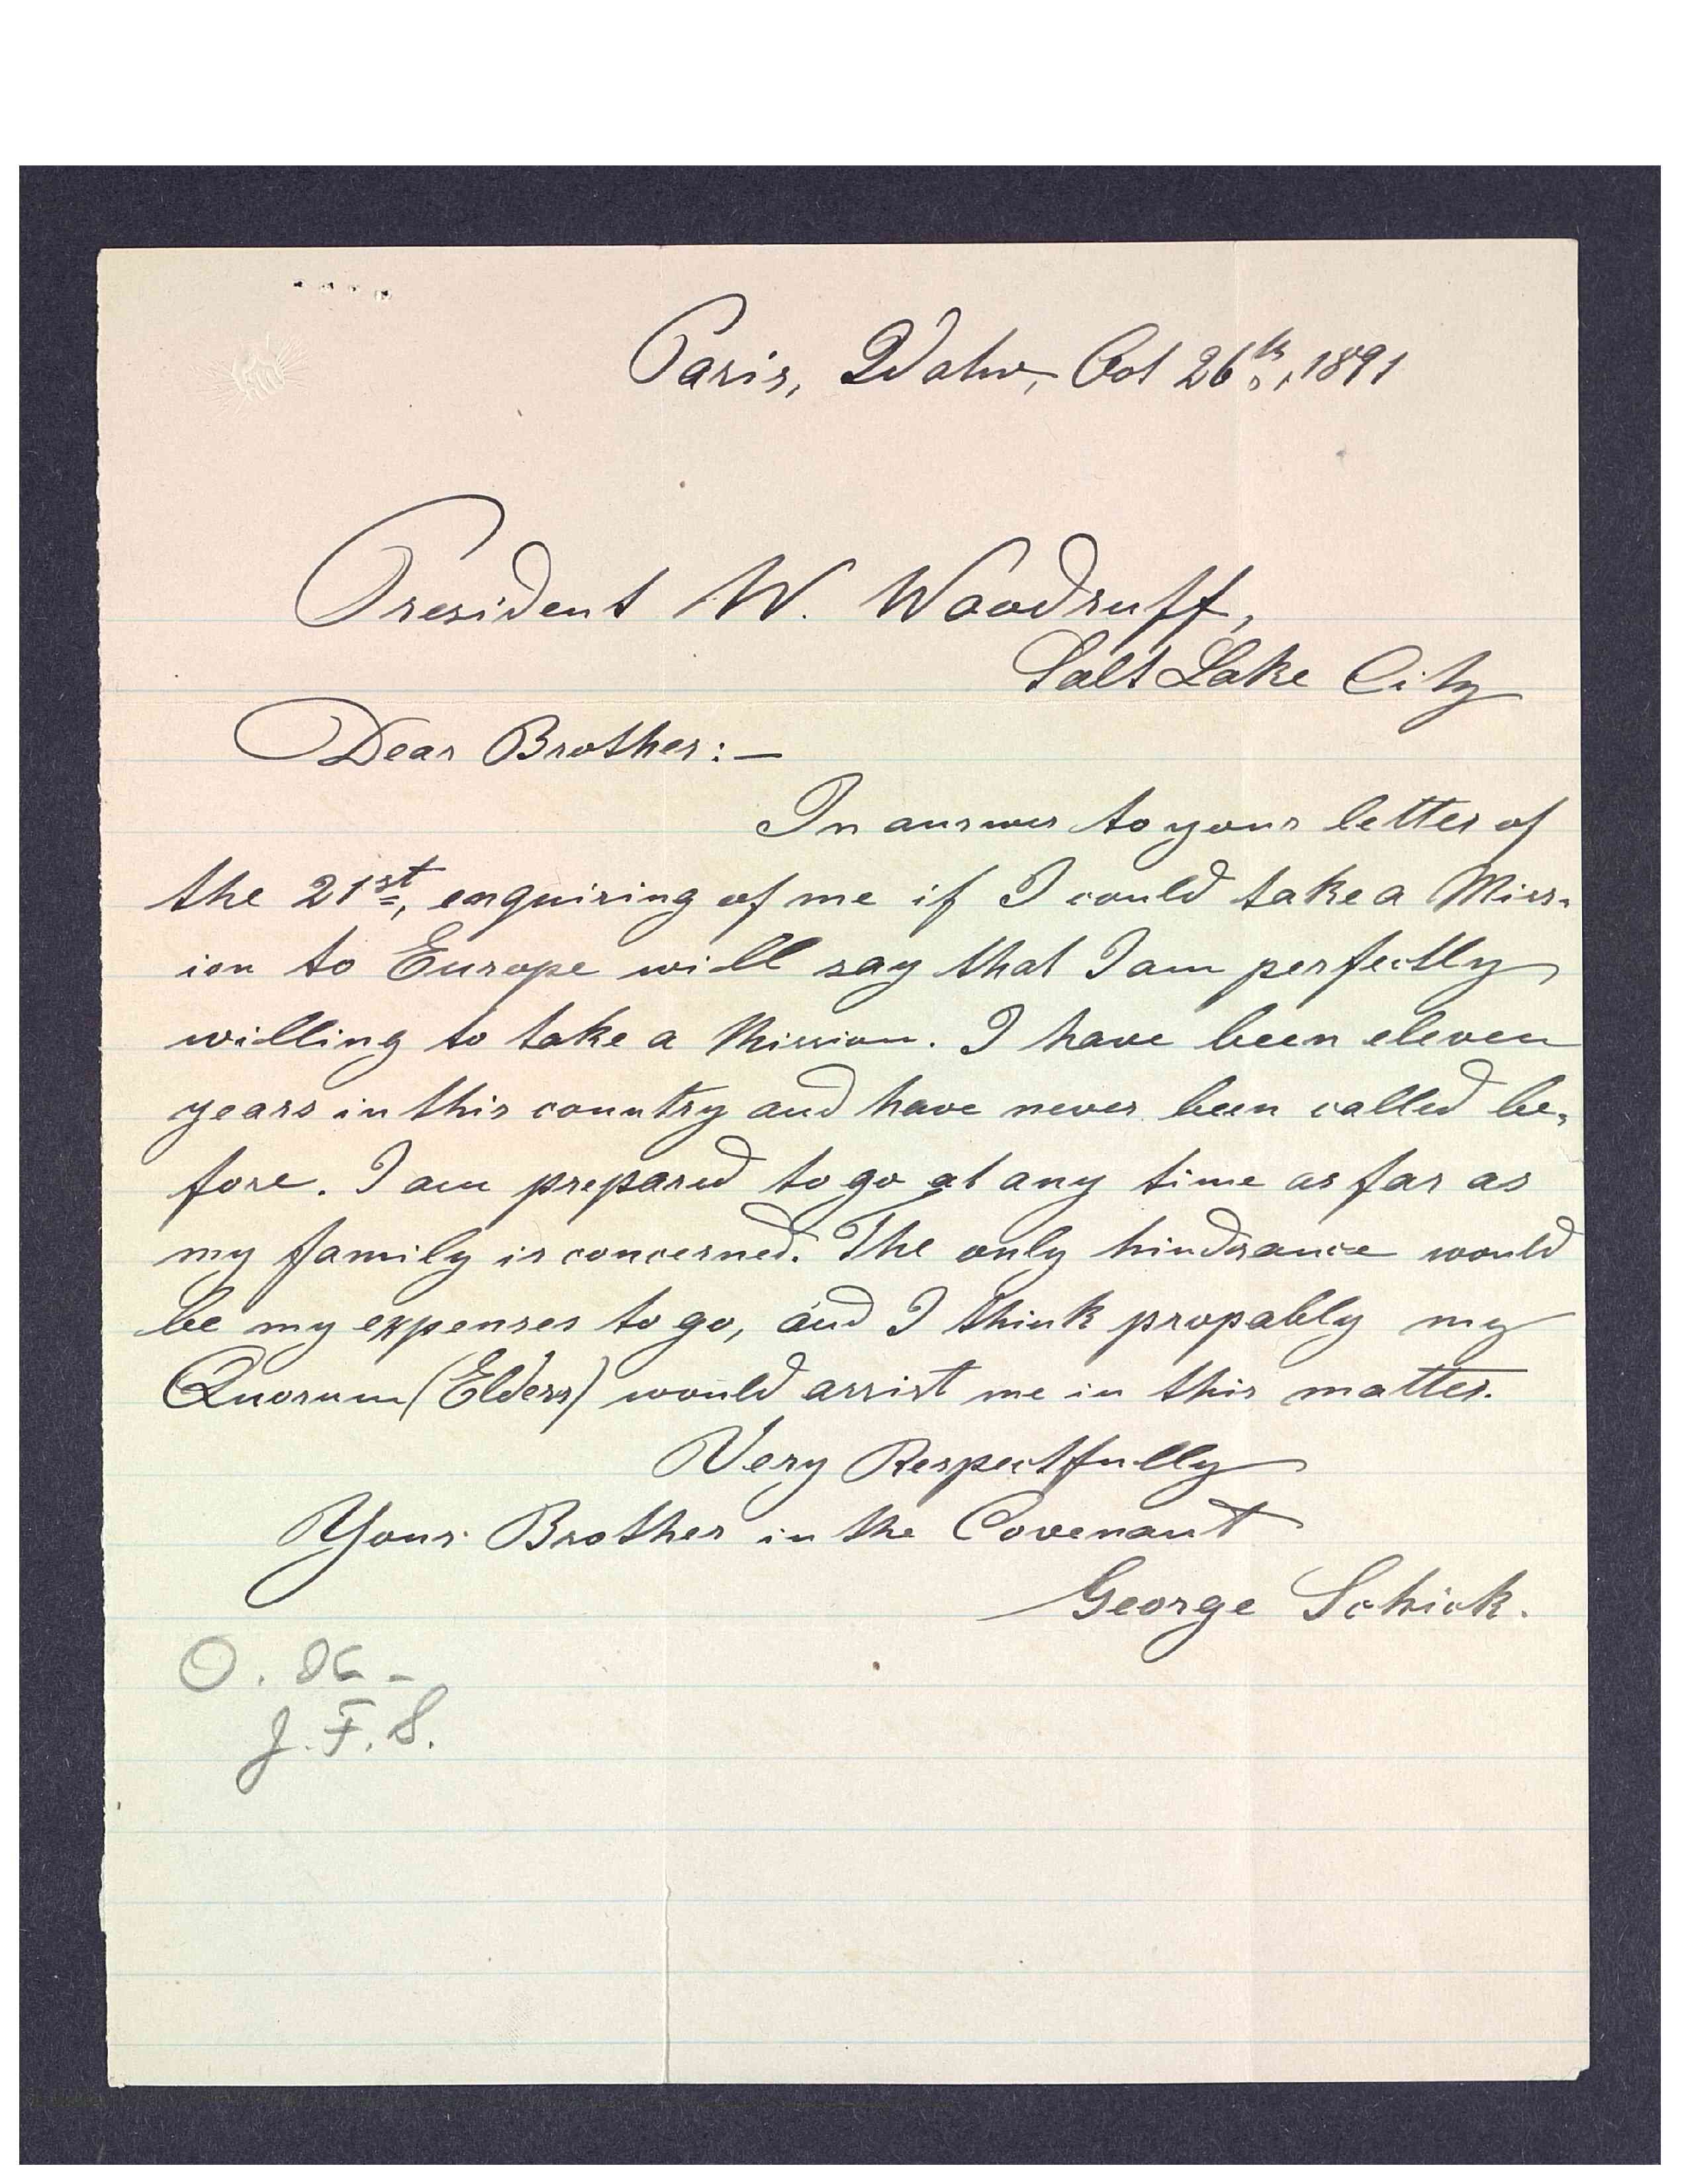 Paris, Idaho, Oct 26th, 1891
President W. Woodruff,
Salt Lake City
Dear Brother:—
In answer to your letter of
the 21st, enquiring of me if I could take a Miss-
ion to Europe will say that I am perfectly
willing to take a Mission. I have been eleven
years in this country and have never been called be-
fore. I am prepared to go at any time as far as
my family is concerned. The only hindrance would
be my expenses to go, and I think propably my
Quorum (Elders) would assist me in this matter.
Very Respectfully
Your Brother in the Covenant
George Schick.
O. K. -
J. F. S.